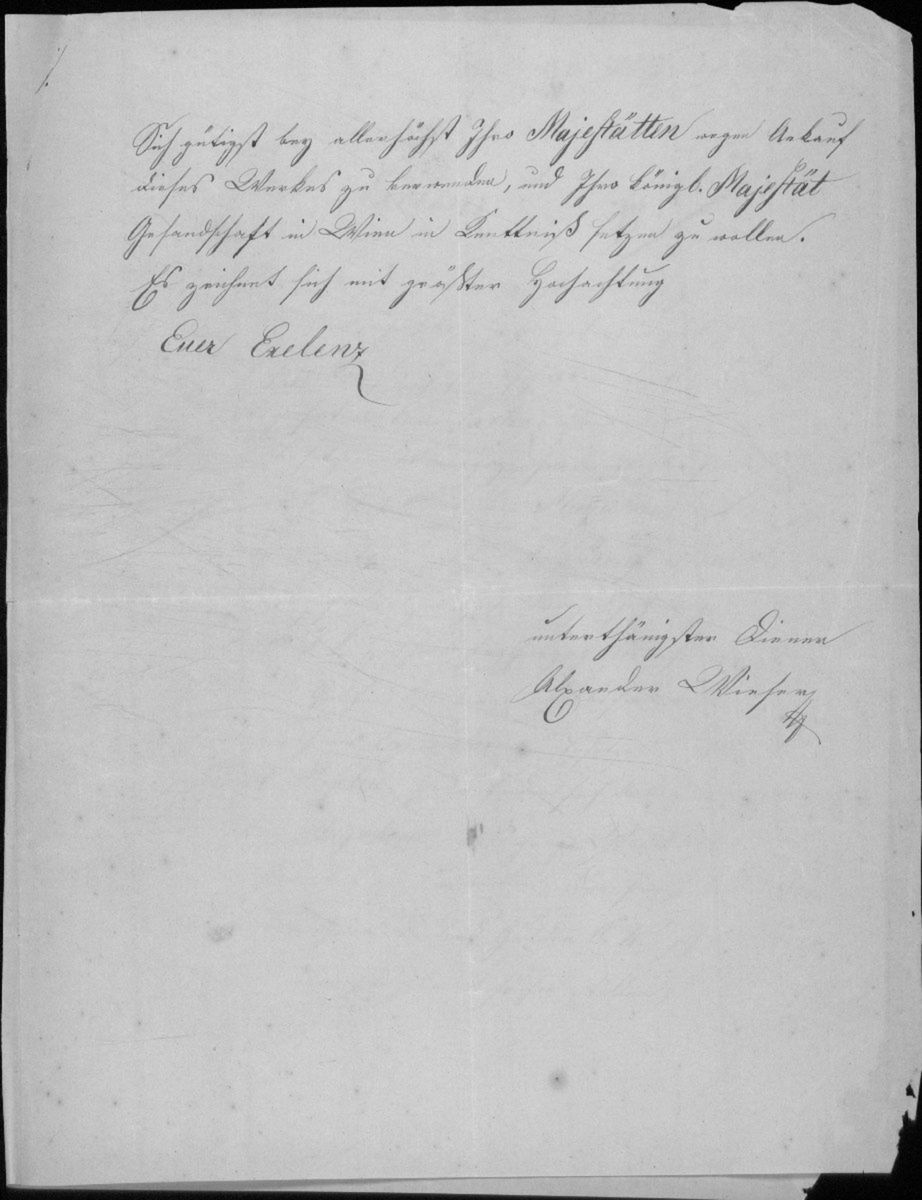 Sich gütigst bey allerhöchst Ihro Majestätten wegen Ankauf
dieses Werkes zu verwenden, und Ihro königl. Majestät
Gesandschaft in Wien in Kenttniß setzen zu wollen.
Es zeichnet sich mit größter Hochachtung
Euer Exelenz
unterthänigster Diener
Alexander Wieser